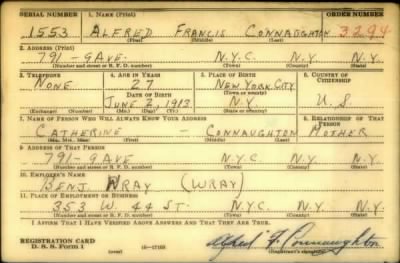 SERIAL NUMBER 1. NAME (Print) ORDER NUMBER
1553 ALFRED FRANCIS CONNAUGHTON 3294
(First) (Middle) (Last)
2. ADDRESS (Print)
791-9AVE N.Y.C. N.Y. N.Y.
(Number and street or R. F. D. number) (Town) (County) (State)
3. TELEPHONE 4. AGE IN YEARS 5. PLACE OF BIRTH 6. COUNTRY OF CITIZENSHIP
NONE 27 NEW YORK CITY
DATE OF BIRTH (Town or county)
JUNE 2, 1913 N.Y. U.S.
(Exchange) (Number) (Mo.) (Day) (Yr.) (State or country)
7. NAME OF PERSON WHO WILL ALWAYS KNOW YOUR ADDRESS 8. RELATIONSHIP OF THAT PERSON
CATHERINE - CONNAUGHTON MOTHER
(Mr., Mrs., Miss) (First) (Middle) (Last)
9. ADDRESS OF THAT PERSON
791-9AVE N.Y.C. N.Y. N.Y.
(Number and street or R. F. D. number) (Town) (County) (State)
10. EMPLOYER'S NAME
BENJ. WRAY (WRAY)
11. PLACE OF EMPLOYMENT OR BUSINESS
353 W. 44 ST. N.Y.C. N.Y. N.Y.
(Number and street or R. F. D. number) (Town) (County) (State)
I AFFIRM THAT I HAVE VERIFIED ABOVE ANSWERS AND THAT THEY ARE TRUE.
REGISTRATION CARD
D. S. S. Form 1 (over) 16-17105 Alfred F. Connaughton
(Registrant's signature)